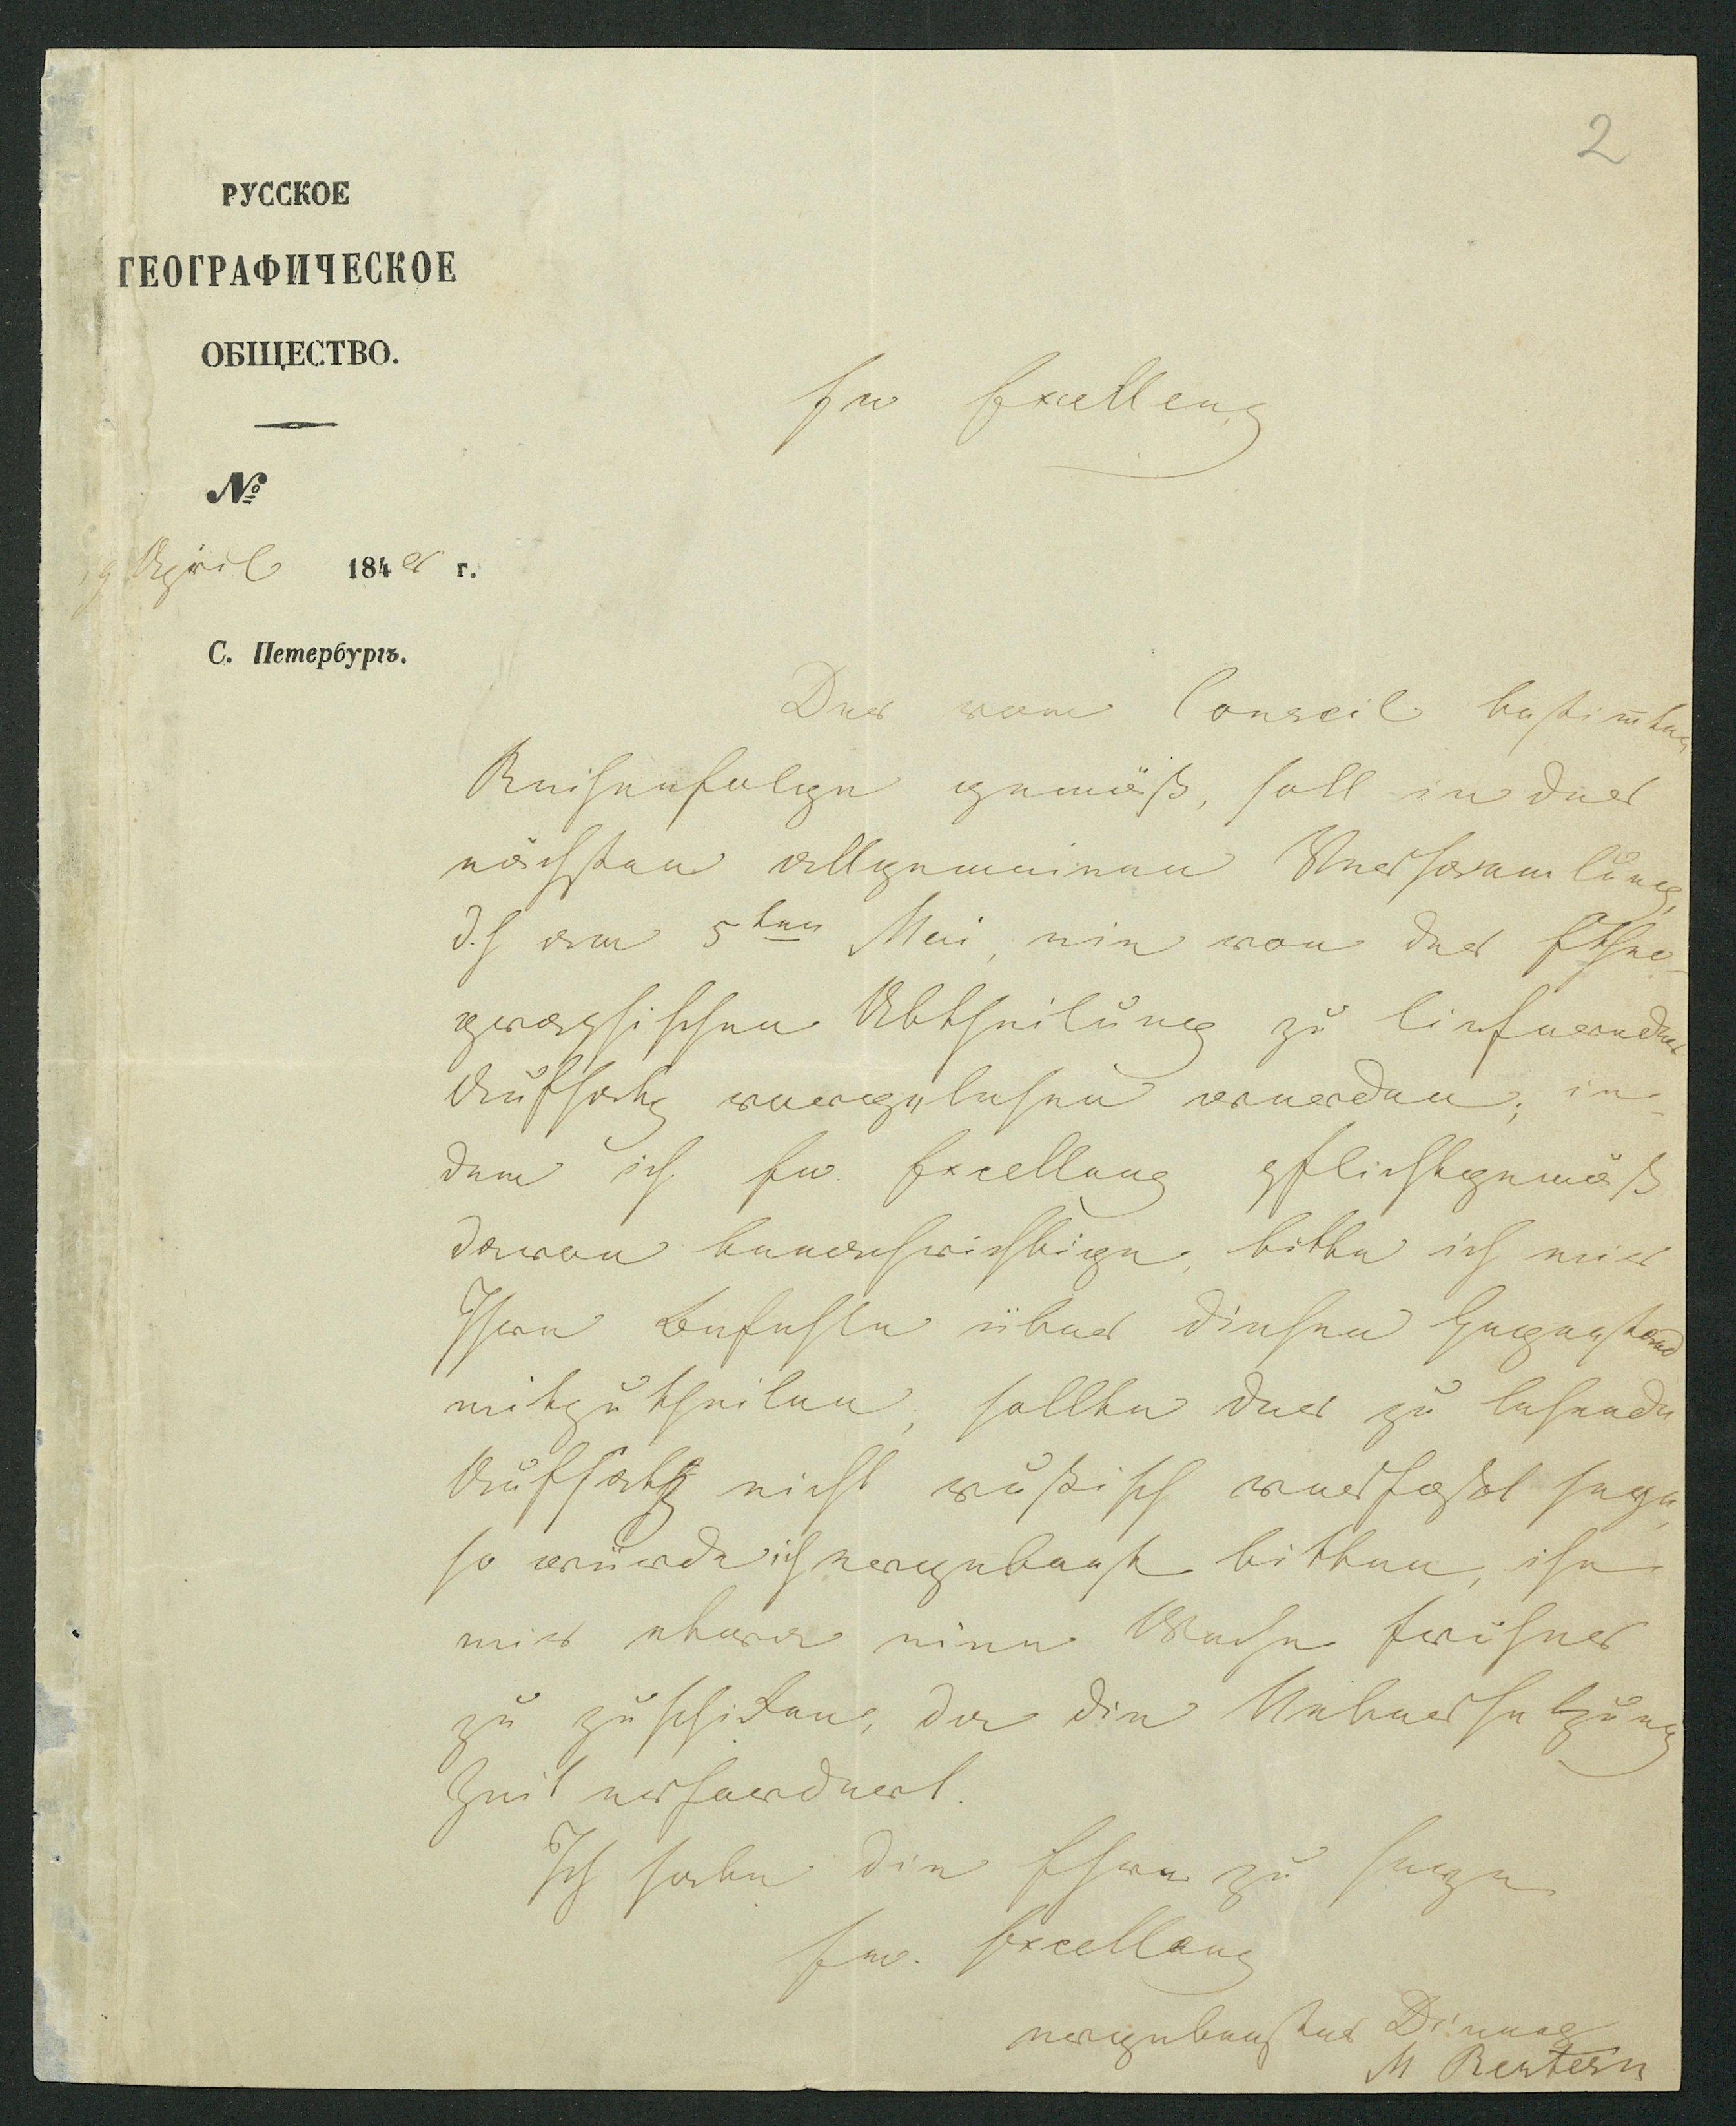 2
РУССКОЕ
ГЕОГРАФИЧЕСКОЕ
ОБЩЕСТВО.
№
19 April 184 г.
С. Петербургъ.
Ew Excellenz
Der vom Conseil bestim̅ten
Reihenfolge gemäß, soll in der
nächsten allgemeinen Versammlung,
d. h am 5ten Mai, ein von der Ethno-
graphischen Abtheilung zu liefernder
Aufsatz vorgelesen werden; in-
dem ich Ew. Excellenz pflichtgemäß
davon benachrichtige, bitte ich mir
Ihre Befehle über diesen Gegenstand
mitzutheilen; sollte der zu lesende
Aufsatz nicht rußisch verfaßt seyn,
so würde ich ergebenst bitten, ihn
mir etwa eine Woche früher
zu zuschicken, da die Uebersetzung
Zeit erfordert.
Ich habe die Ehre zu seyn
Ew. Excellenz
ergebenster Diener
M Reutern